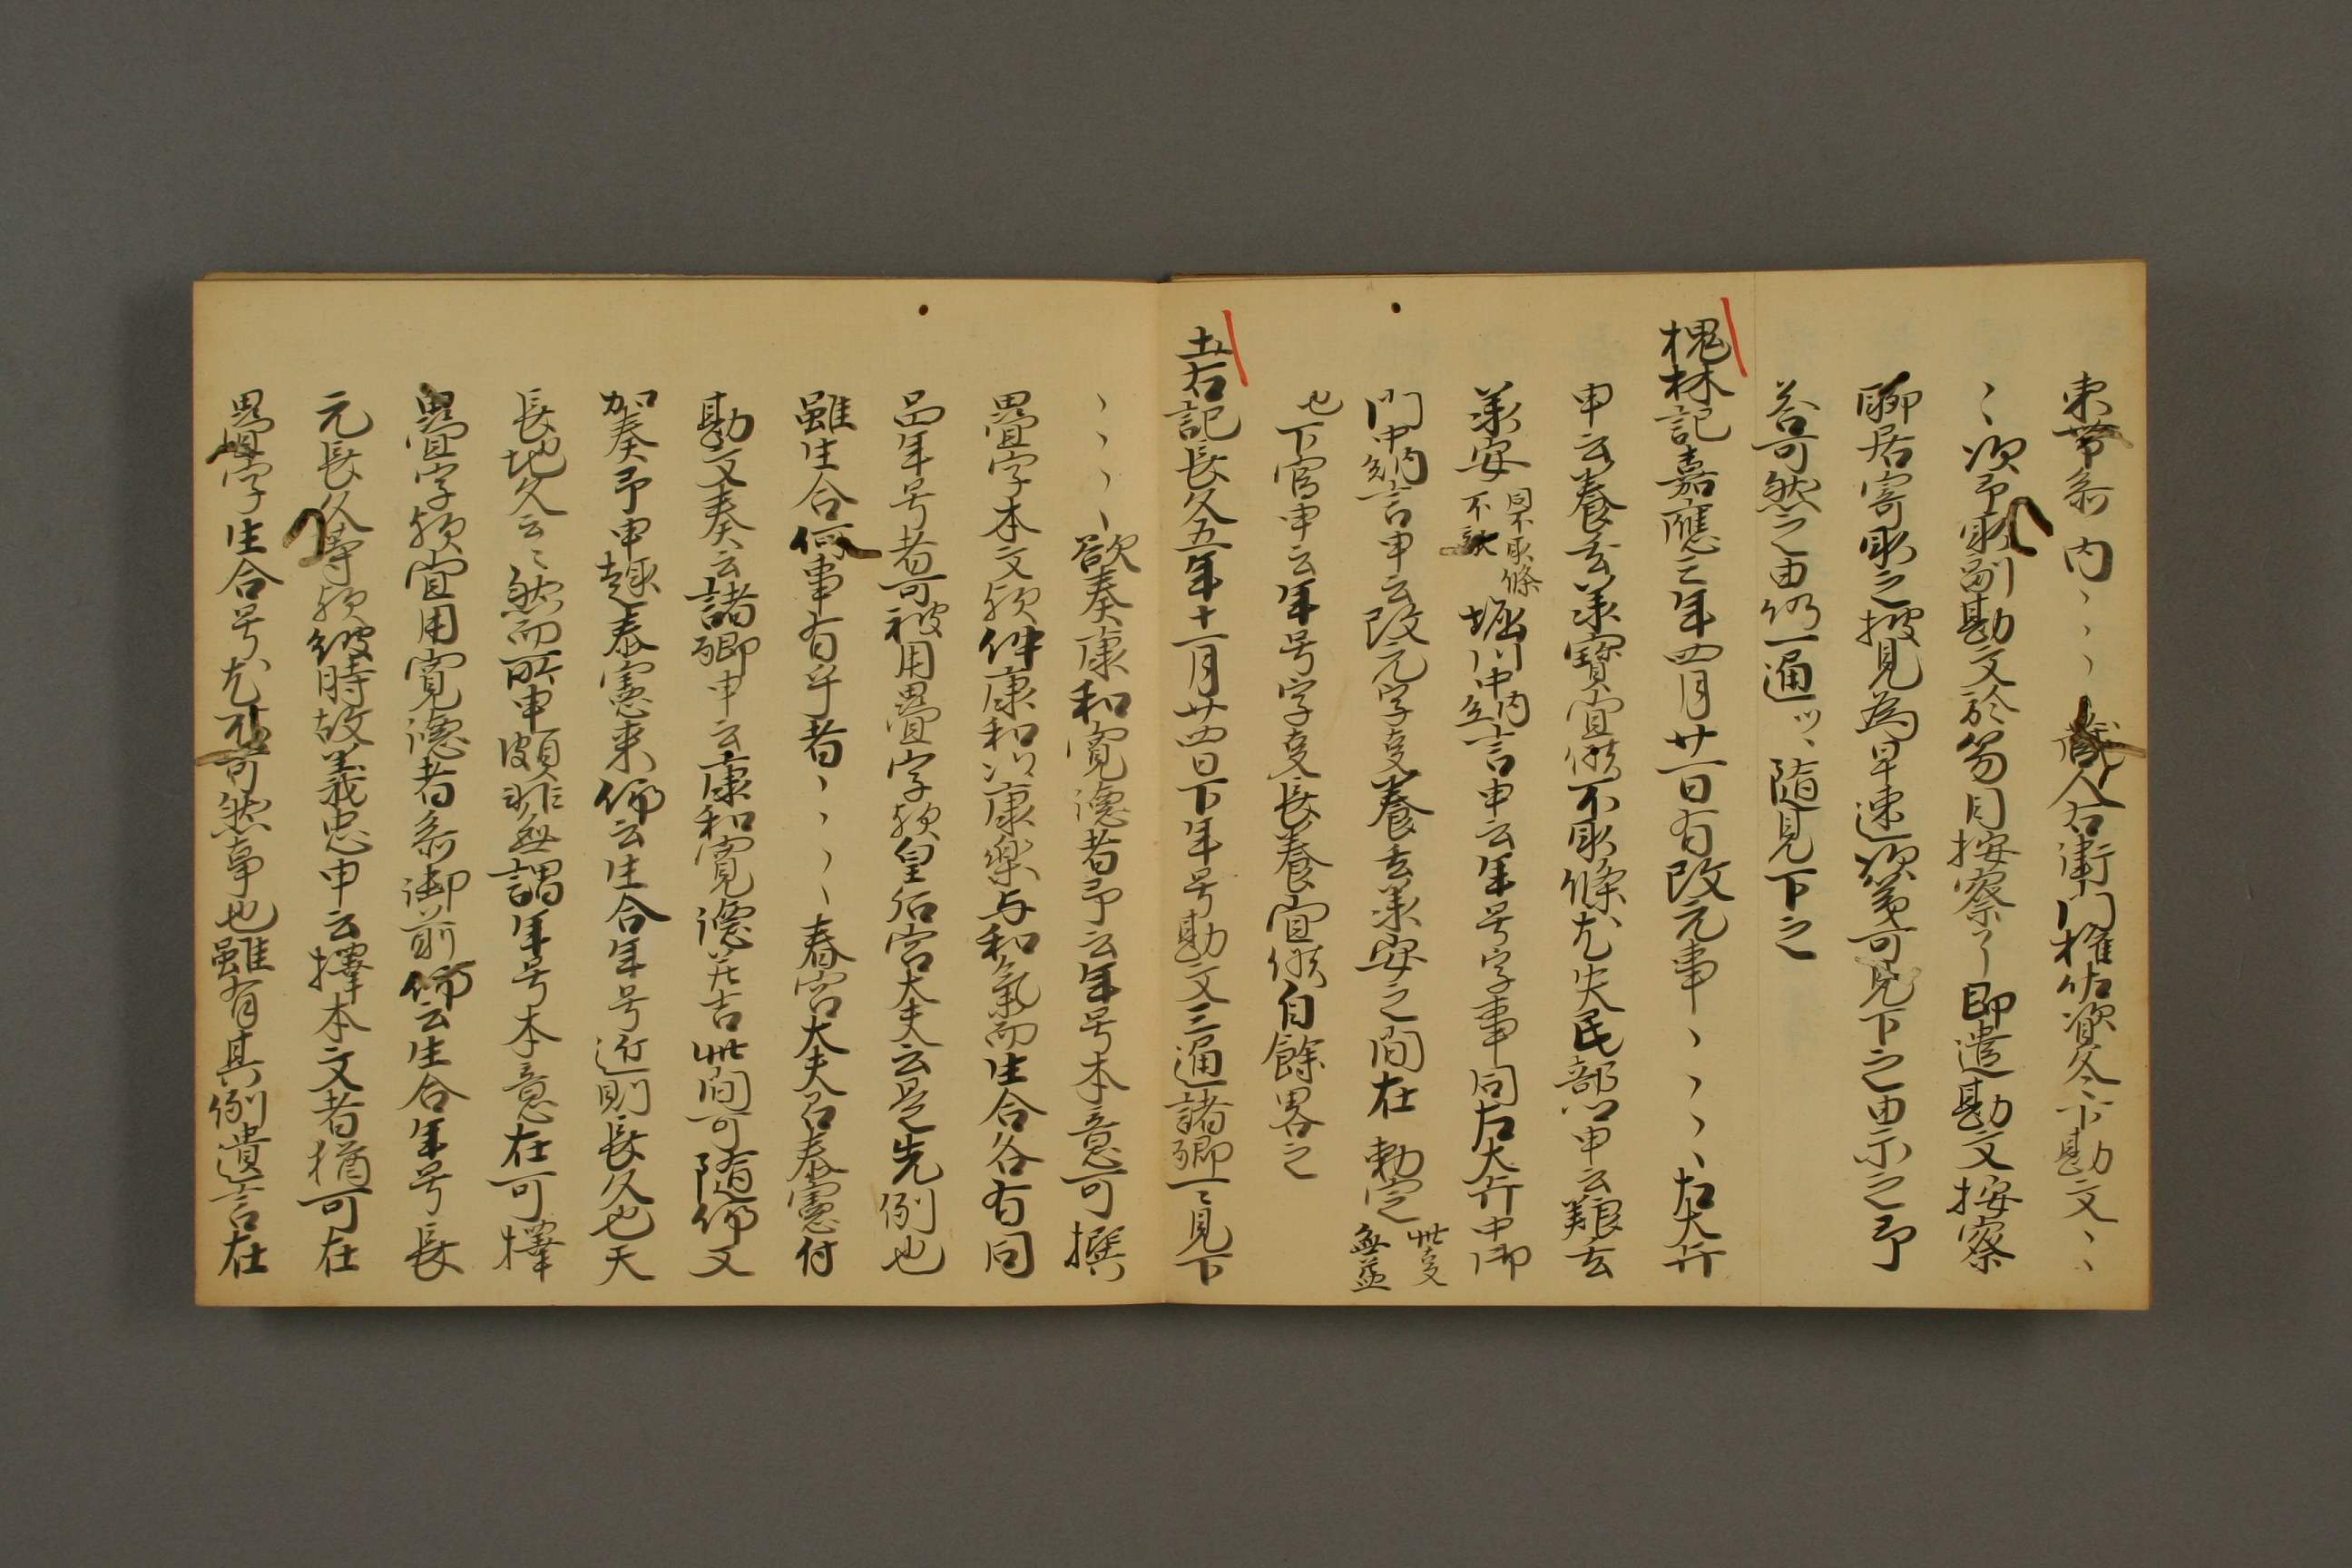 束帯参内、、、蔵人右衛門権佐資冬下勘文、、
、、次予取副勘文於笏目按察了即遣勘文按察
聊居寄取之披見為早速次第可見下之由示之予
答可然之由仍一通ツヽ随見下之
槐林記嘉應三年四月廿一日有改元事、、、、左大弁
申云養云承寶宜候不取條尤失民部申云難云
承安同不取條不詳堀川中納言申云年号字事同左大弁中御
門中納言申云改元字事養云承安之間在勅定此事無益
也下官申云年号字事長養宜候自餘畧之
土右記長久五年十一月廿四日下年号勘文三通諸卿一々見下
、、、、欲奏康和寛徳者予云年号本意可撰
疊字本文歟件康和以康樂与和氣而生合各有同
品年号者可被用疊字歟皇后宮大夫云是先例也
雖生合何事有乎者、、、、春宮大夫召泰憲付
勘文奏云諸卿申云康和寛徳共吉此間可随仰又
加奏予申趣泰憲来仰云生合年号近則長久也天
長地久云々然而所申頗非無謂年号本意在可擇
疊字歟宜用寛徳者参御前仰云生合年号長
元長久等歟彼時故義忠申云擇本文者猶可在
疊字生合号尤不可然事也雖有其例遺言在